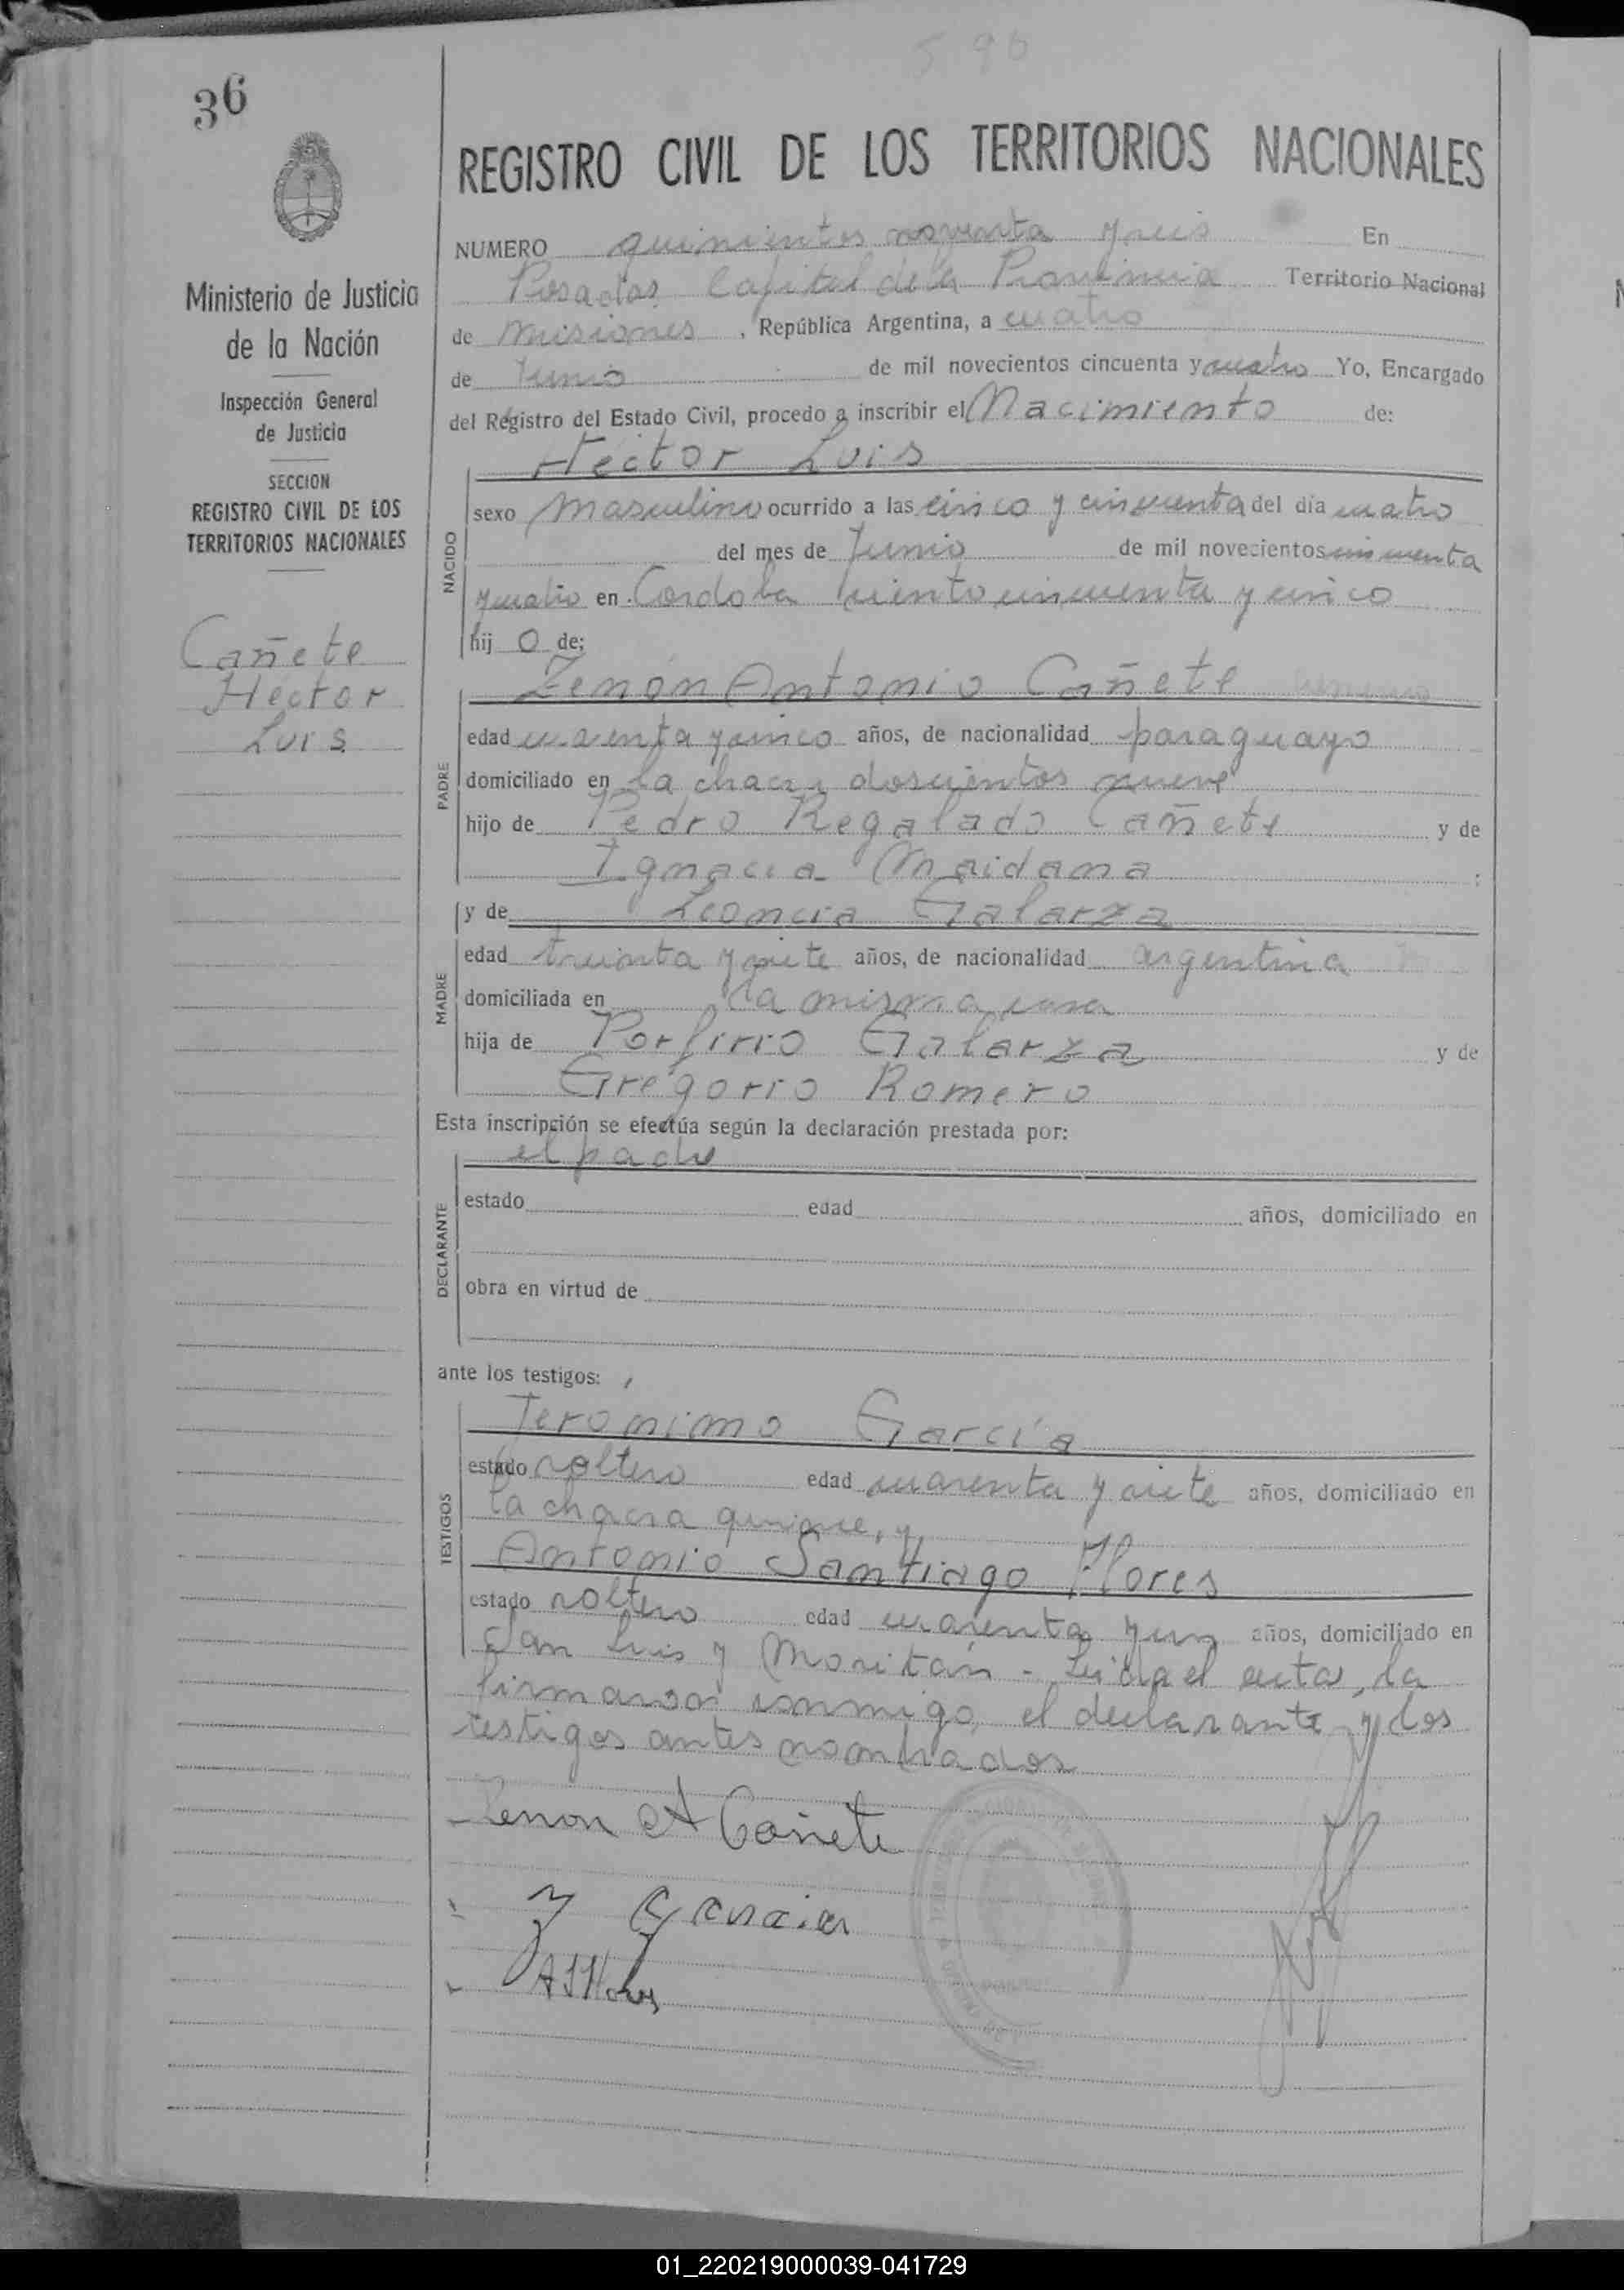 596
36
REGISTRO CIVIL DE LOS TERRITORIOS NACIONALES
Ministerio de Justicia
de la Nación
Inspección General
de Justicia
SECCION
REGISTRO CIVIL DE LOS
TERRITORIOS NACIONALES
Cañete
Héctor
Luis
NUMERO quinientos noventa y seis En
Posadas Capital de la Provincia Territorio Nacional
de Misiones, República Argentina, a cuatro
de Junio de mil novecientos cincuenta y cuatro Yo, Encargado
del Registro del Estado Civil, procedo a inscribir el Nacimiento de:
NACIDO
Héctor Luis
sexo masculino ocurrido a las cinco y cincuenta del día cuatro
del mes de Junio de mil novecientos cincuenta
y cuatro en Cordoba ciento cincuenta y cinco
hij o de:
PADRE
Zenón Antonio Cañete
edad cuarenta y cinco años, de nacionalidad paraguayo
domiciliado en la chacra doscientos nueve
hijo de Pedro Regalado Cañete y de
Ignacia Maidana ;
MADRE
y de Leoncia Galarza
edad treinta y siete años, de nacionalidad argentina
domiciliada en la misma casa
hija de Porfirio Galarza y de
Gregorio Romero
Esta inscripción se efectúa según la declaración prestada por:
DECLARANTE
el padre
estado edad años, domiciliado en
obra en virtud de
ante los testigos:
TESTIGOS
Jeronimo García
estado soltero edad cuarenta y siete años, domiciliado en
la chacra quince, y
Antonio Santiago Flores
estado soltero edad cuarenta y un años, domiciliado en
San Luis y Moritán - Leida el acta, la
firmaron conmigo, el declarante y los
testigos antes nombrados
Zenon A Cañete
J Garcia
A S Flores
01_220219000039-041729